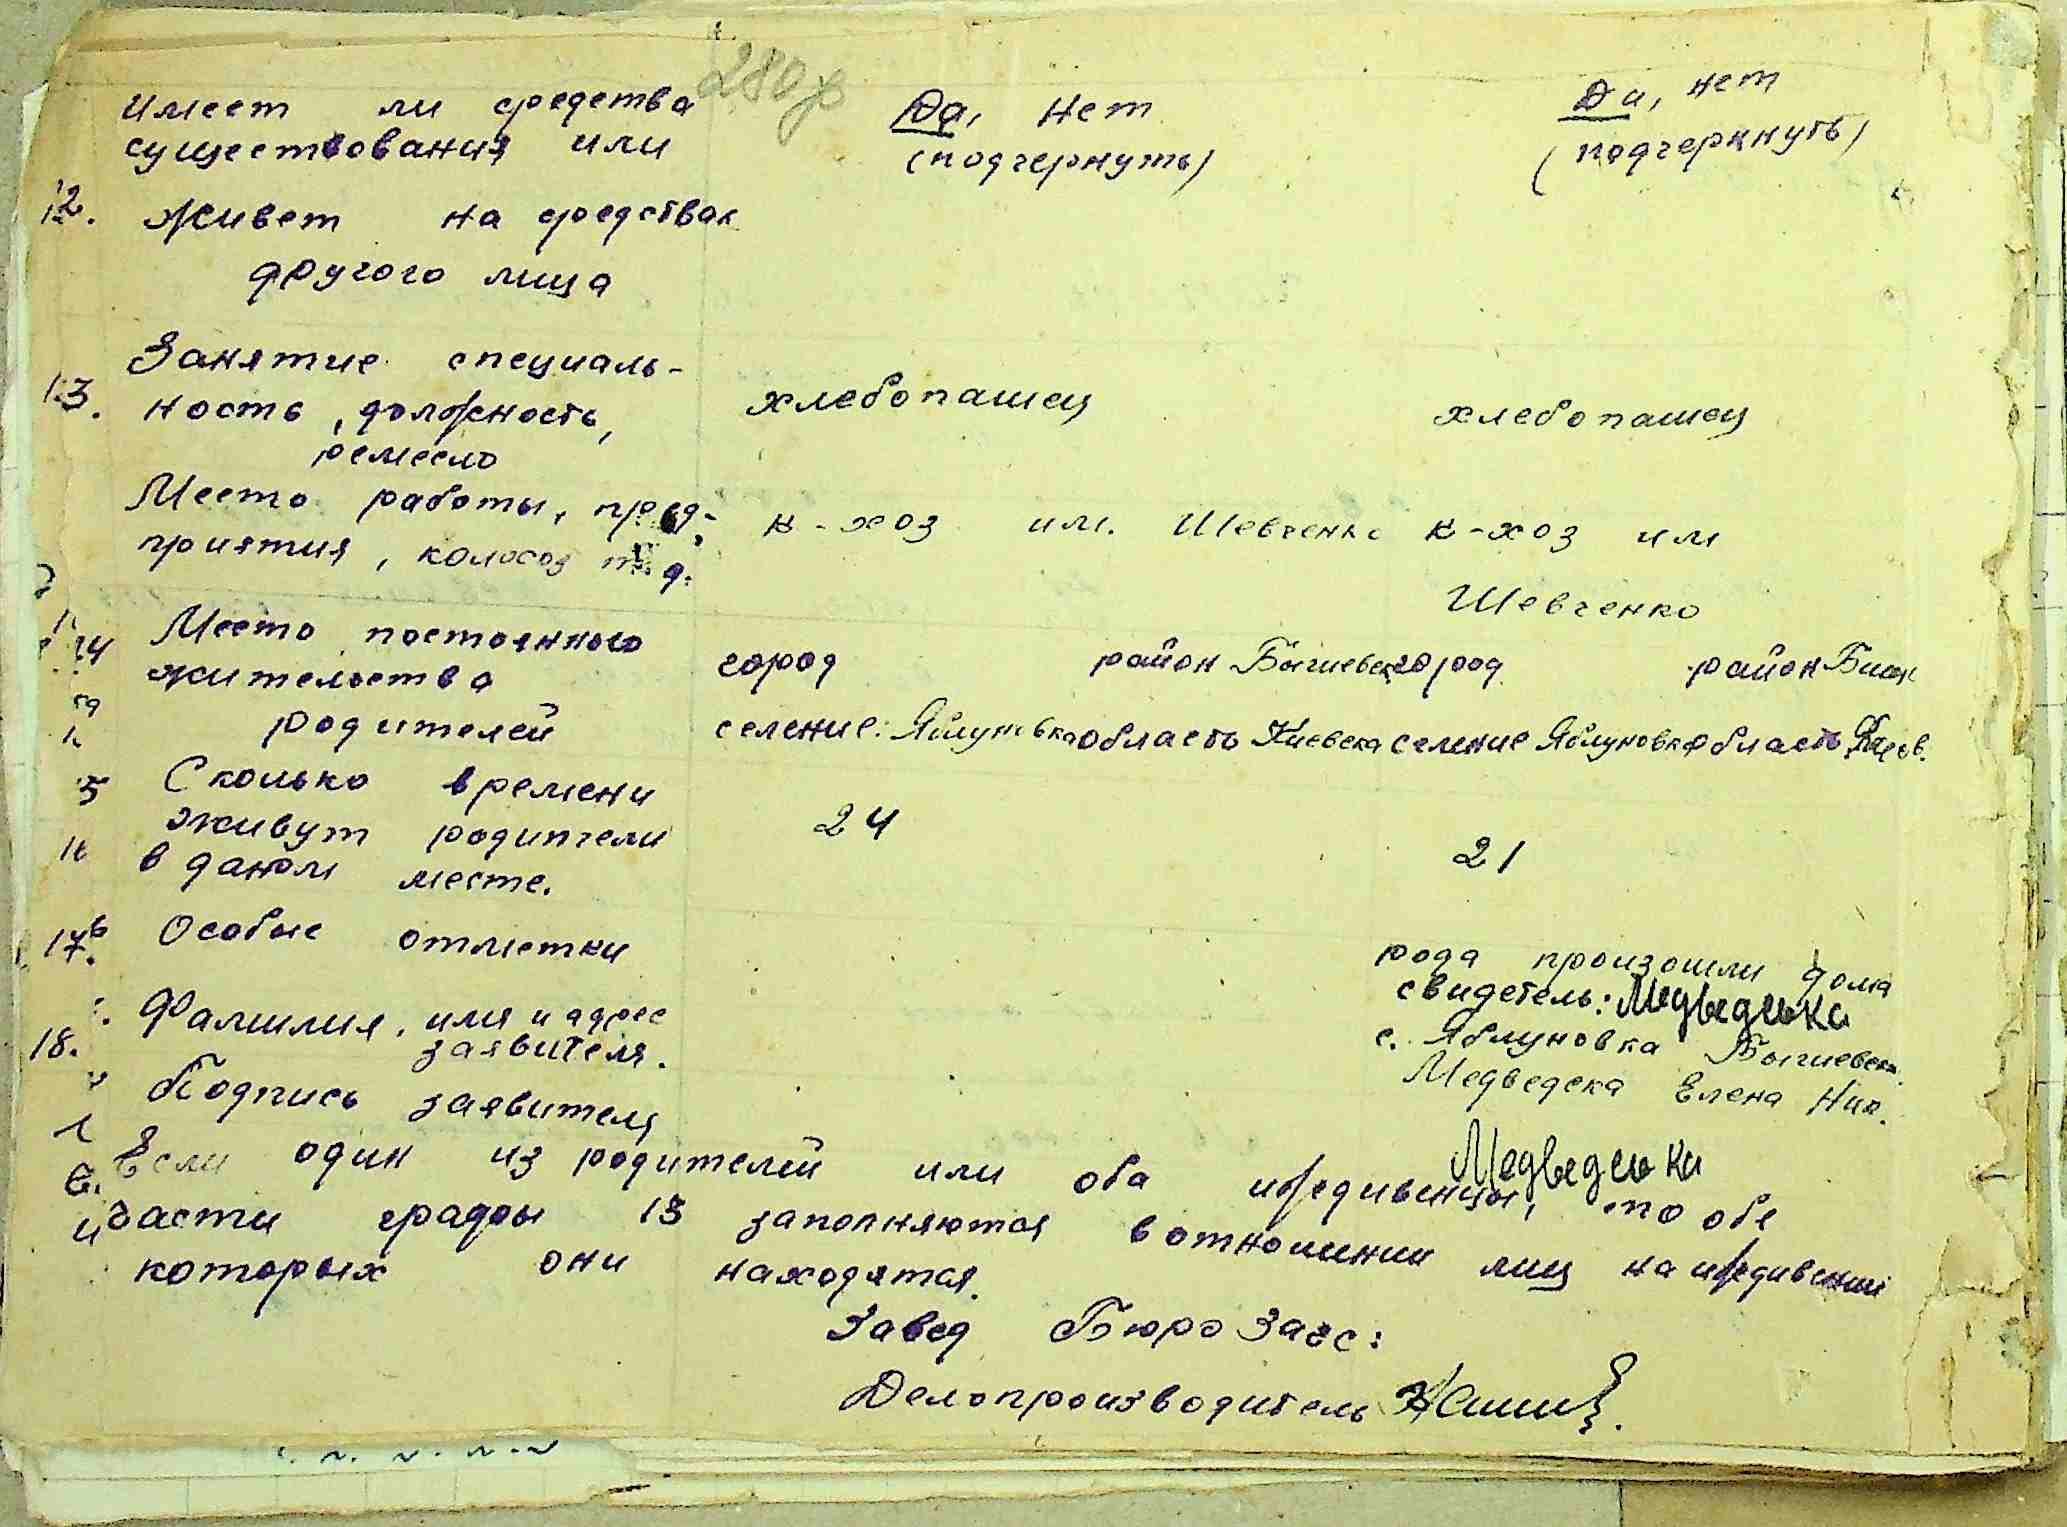 280
имеет ли средства Да, Нет Да, нет
существования или (подчернуть) (подчеркнуть)
12. живет на средствах
другого лица
Занятие специаль-
13. ность, должность, хлебопашец хлебопашец
ремесло
Место работы, пред- к-хоз им. Шевченко к-хоз им
приятия, колхоз т. д. Шевченко
14 Место постоянного город район Бышевск город район Быш
жительства
родителей селение: Яблуновка область Киевска селение Яблуновка область Киев.
15 Сколько времени
живут родители 24 21
16 в даном месте.
17. Особые отметки рода произошли дома
свидетель: Медведська
18. Фамилия, имя и адрес с. Яблуновка Бышевск.
заявителя. Медведска Елена Ник.
Подпись заявителя Медведська
Если один из родителей или оба иждивенцы, то обе
части графы 13 заполняются в отношении лиц на иждивении
которых они находятся.
Завед Бюро Загс:
Делопроизводитель